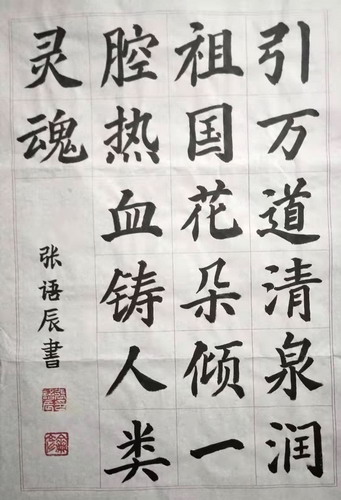 引万道清泉润
祖国花朵倾一
腔热血铸人类
灵魂
张语辰書